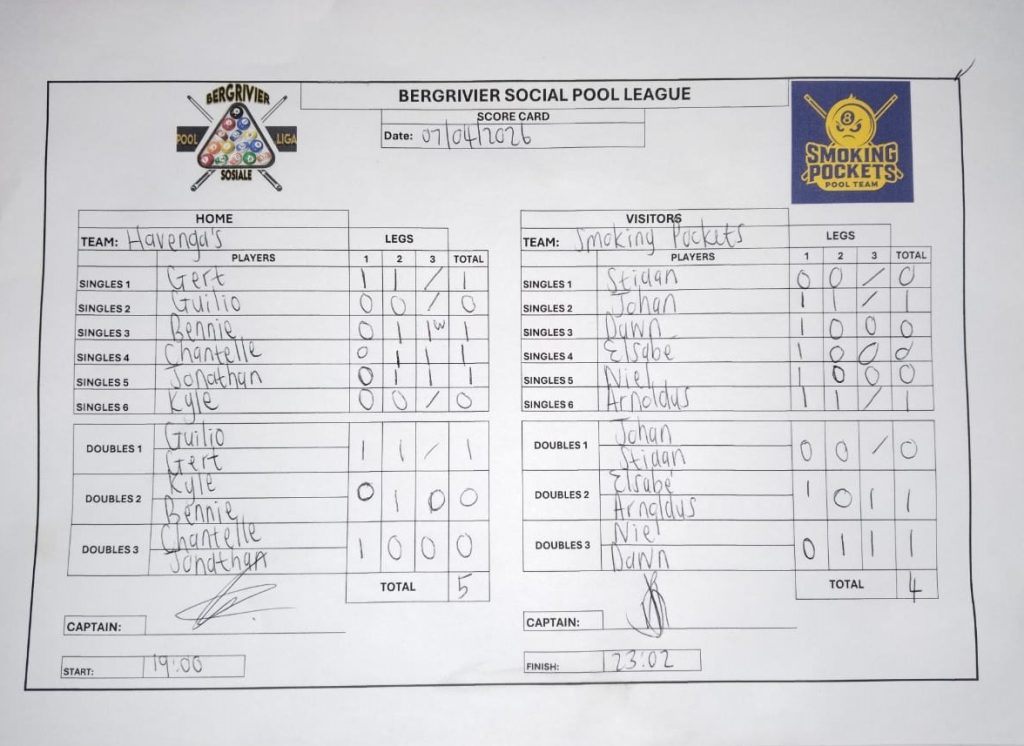 BERGRIVIER
POOL LIGA
SOSIALE
BERGRIVIER SOCIAL POOL LEAGUE
SCORE CARD
Date: 07/04/2026
8
SMOKING
POCKETS
POOL TEAM
HOME
TEAM: Havenga's LEGS
PLAYERS 1 2 3 TOTAL
SINGLES 1 Gert 1 1 / 1
SINGLES 2 Guilio 0 0 / 0
SINGLES 3 Bennie 0 1 1w 1
SINGLES 4 Chantelle 0 1 1 1
SINGLES 5 Jonathan 0 1 1 1
SINGLES 6 Kyle 0 0 / 0
DOUBLES 1 Guilio 1 1 / 1
Gert
DOUBLES 2 Kyle 0 1 0 0
Bennie
DOUBLES 3 Chantelle 1 0 0 0
Jonathan
TOTAL 5
CAPTAIN:
START: 19:00
VISITORS
TEAM: Smoking Pockets LEGS
PLAYERS 1 2 3 TOTAL
SINGLES 1 Stidan 0 0 / 0
SINGLES 2 Johan 1 1 / 1
SINGLES 3 Dawn 1 0 0 0
SINGLES 4 Elsabe 1 0 0 0
SINGLES 5 Niel 1 0 0 0
SINGLES 6 Arnoldus 1 1 / 1
DOUBLES 1 Johan 0 0 / 0
Stidan
DOUBLES 2 Elsabé 1 0 1 1
Arnoldus
DOUBLES 3 Niel 0 1 1 1
Dawn
TOTAL 4
CAPTAIN:
FINISH: 23:02